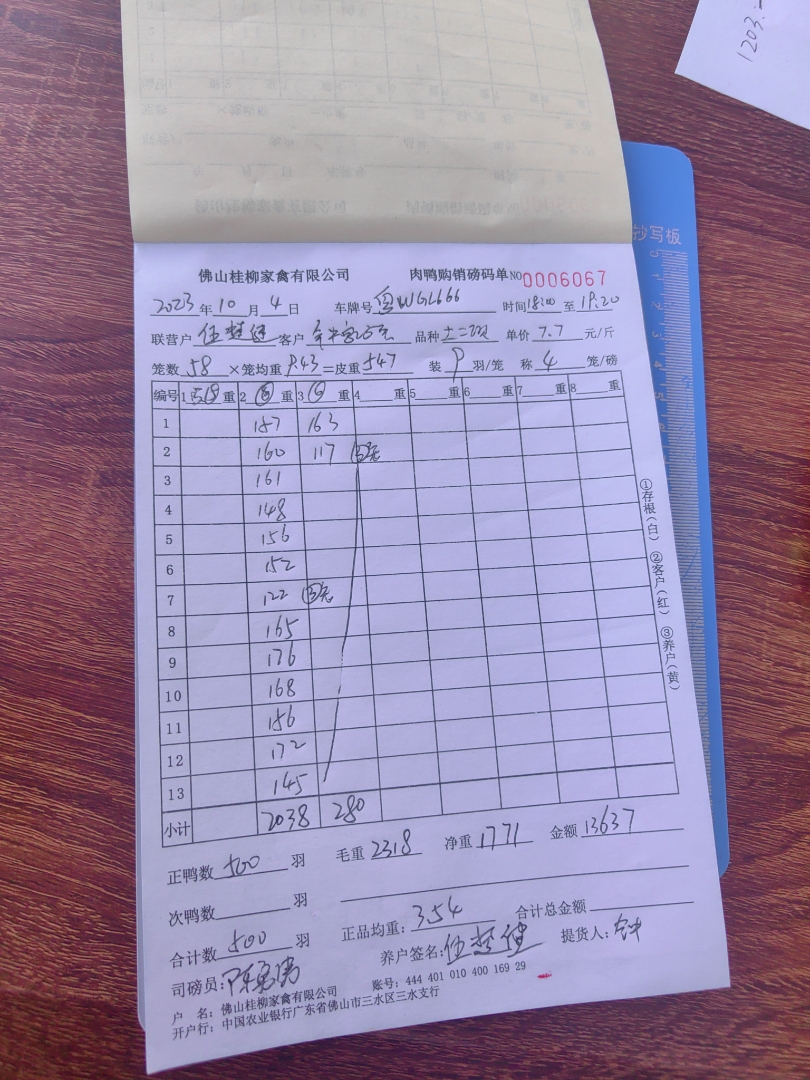 1203.
抄写板
佛山桂柳家禽有限公司 肉鸭购销磅码单 NO 0006067
2023年10月4日 车牌号 粤WGL666 时间18:00至19:20
联营户 伍楚健 客户 品种 土二双 单价 7.7 元/斤
笼数 58 ×笼均重 9.43 =皮重 547 装 9 羽/笼 称 4 笼/磅
编号 1 重 2 重 3 重 4 重 5 重 6 重 7 重 8 重
1 157 163
2 160 117
3 161
4 148
5 156
6 152
7 122
8 165
9 176
10 168
11 156
12 172
13 145
小计 2038 280
①存根(白) ②客户(红) ③养户(黄)
正鸭数 500 羽 毛重 2318 净重 1771 金额 13637
次鸭数 羽
合计数 500 羽 正品均重: 3.54 合计总金额
司磅员: 养户签名: 伍楚健 提货人:
户 名: 佛山桂柳家禽有限公司 账号: 444 401 010 400 169 29
开户行: 中国农业银行广东省佛山市三水区三水支行